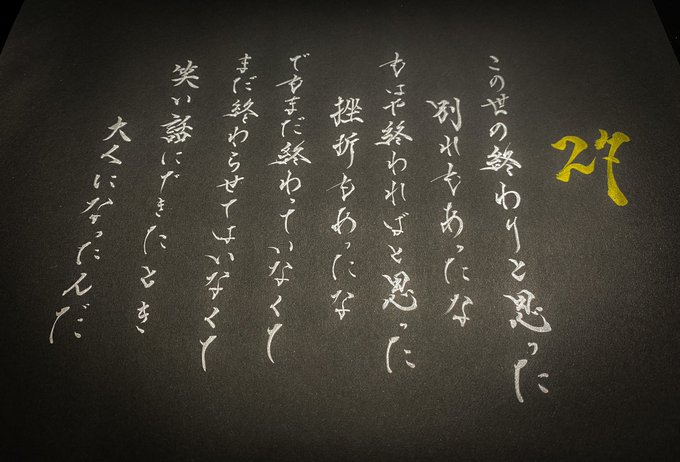 27
この世の終わりと思った
別れもあったな
もはや終わればと思った
挫折もあったな
でもまだ終わっていなくて
まだ終わらせてはいなくて
笑い話にできたとき
大人になったんだ